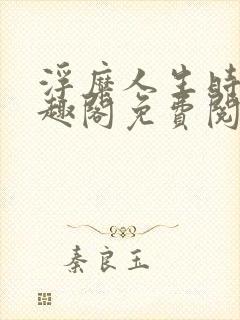 浮靡人生时
趣阁免费阅
秦良玉